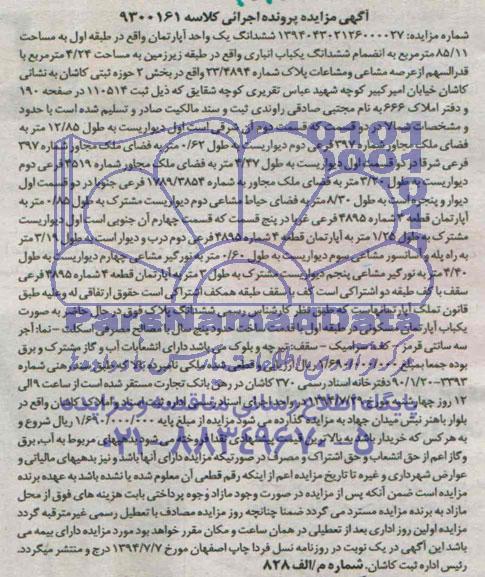 آگهی مزایده پرونده اجرائی کلاسه ۹۳۰۰۱۶۱
شماره مزایده: ۱۳۹۴۰۴۳۰۲۱۲۶۰۰۰۰۲۷ ششدانگ یک واحد آپارتمان واقع در طبقه اول به مساحت
۸۵/۱۱ مترمربع به انضمام ششدانگ یکباب انباری واقع در طبقه زیرزمین به مساحت ۴/۲۴ مترمربع با
قدرالسهم از عرصه مشاعی ومشاعات پلاک شماره ۳۳/۴۸۹۴ واقع در بخش ۲ حوزه ثبتی کاشان به نشانی
کاشان خیابان امیرکبیر کوچه شهید عباس تقریری کوچه شقایق که ذیل ثبت ۱۱۰۵۱۴ در صفحه ۱۹۰
و دفتر املاک ۶۶۶ به نام مجتبی صادقی راوندی ثبت و سند مالکیت صادر و تسلیم شده است با حدود
و مشخصات شمالا در دو قسمت که قسمت دوم آن شرقی است اول دیواریست به طول ۱۲/۸۵ متر به
فضای ملک مجاور شماره ۳۹۷ فرعی دوم دیواریست به طول ۰/۶۲ متر به فضای ملک مجاور شماره ۳۹۷
فرعی شرقا در دو قسمت اول دیواریست به طول ۴/۴۷ متر به فضای ملک مجاور شماره ۴۵۱۹ فرعی دوم
دیواریست به طول ۳/۲۰ متر به فضای ملک مجاور به شماره ۱۷۸۹/۳۸۵۴ فرعی جنوبا در دو قسمت اول
دیوار و پنجره است به طول ۸/۳۰ متر به فضای حیاط مشاعی دوم دیواریست مشترک به طول ۰/۸۵ متر به
آپارتمان قطعه ۴ شماره ۴۸۹۵ فرعی غربا در پنج قسمت که قسمت چهارم آن جنوبی است اول دیواریست
مشترک به طول ۱/۲۵ متر به آپارتمان قطعه ۴ شماره ۴۸۹۵ فرعی دوم درب و دیوار است به طول ۳/۱۹ متر
به راه پله و آسانسور مشاعی سوم دیواریست به طول ۰/۶۰ متر به نورگیر مشاعی چهارم دیواریست به طول
۴/۴۰ متر به نورگیر مشاعی پنجم دیواریست مشترک به طول ۲ متر به آپارتمان قطعه ۴ شماره ۴۸۹۵ فرعی
سقف با کف طبقه دو اشتراکی است کف با سقف طبقه همکف اشتراکی است حقوق ارتفاقی له و علیه طبق
قانون تملک آپارتمانهاست که طبق نظر کارشناس رسمی ششدانگ پلاک فوق در حال حاضر به صورت
یکباب آپارتمان مسکونی در طبقه اول با قدمت ساخت حدود سال با مصالح مصرفی اسکلت - نما: آجر
سه سانتی قرمز - کف: سرامیک - سقف: تیرچه و بلوک می باشد دارای انشعابات آب و گاز مشترک و برق
بوده جمعا بمبلغ ۱/۶۹۰/۰۰۰/۰۰۰ ریال ارزیابی و قطعی شده ملکی نامبرده بالا که طبق سند رهنی شماره
۳۳۹۳-۹۰/۱/۲۰ دفترخانه اسناد رسمی ۳۷۰ کاشان در رهن بانک تجارت مستقر شده است از ساعت ۹ الی
۱۲ روز چهارشنبه مورخ ۱۳۹۴/۷/۲۹ در واحد اجرای اسناد رسمی اداره ثبت اسناد و املاک کاشان واقع در
بلوار باهنر نبش میدان جهاد به مزایده گذارده می شود مزایده از مبلغ پایه ۱/۶۹۰/۰۰۰/۰۰۰ ریال شروع و
به هر کس که خریدار باشد به بالاترین قیمت پیشنهادی نقدا فروخته می شود بدهیهای مربوط به آب، برق
و گاز اعم از حق انشعاب و حق اشتراک و مصرف در صورتیکه مزایده دارای آنها باشد و نیز بدهیهای مالیاتی و
عوارض شهرداری و غیره تا تاریخ مزایده اعم از اینکه رقم قطعی آن معلوم شده یا نشده باشد به عهده برنده
مزایده است ضمن آنکه پس از مزایده در صورت وجود مازاد وجوه پرداختی بابت هزینه های فوق از محل
مازاد به برنده مزایده مسترد می گردد ضمنا چنانچه روز مزایده مصادف با تعطیل رسمی غیرمترقبه گردد
مزایده اولین روز اداری بعد از تعطیلی در همان ساعت و مکان مقرر خواهد بود مورد مزایده دارای بیمه می
باشد این آگهی در یک نوبت در روزنامه نسل فردا چاپ اصفهان مورخ ۱۳۹۴/۷/۷ درج و منتشر میگردد.
رئیس اداره ثبت کاشان. شماره م/الف ۸۲۸